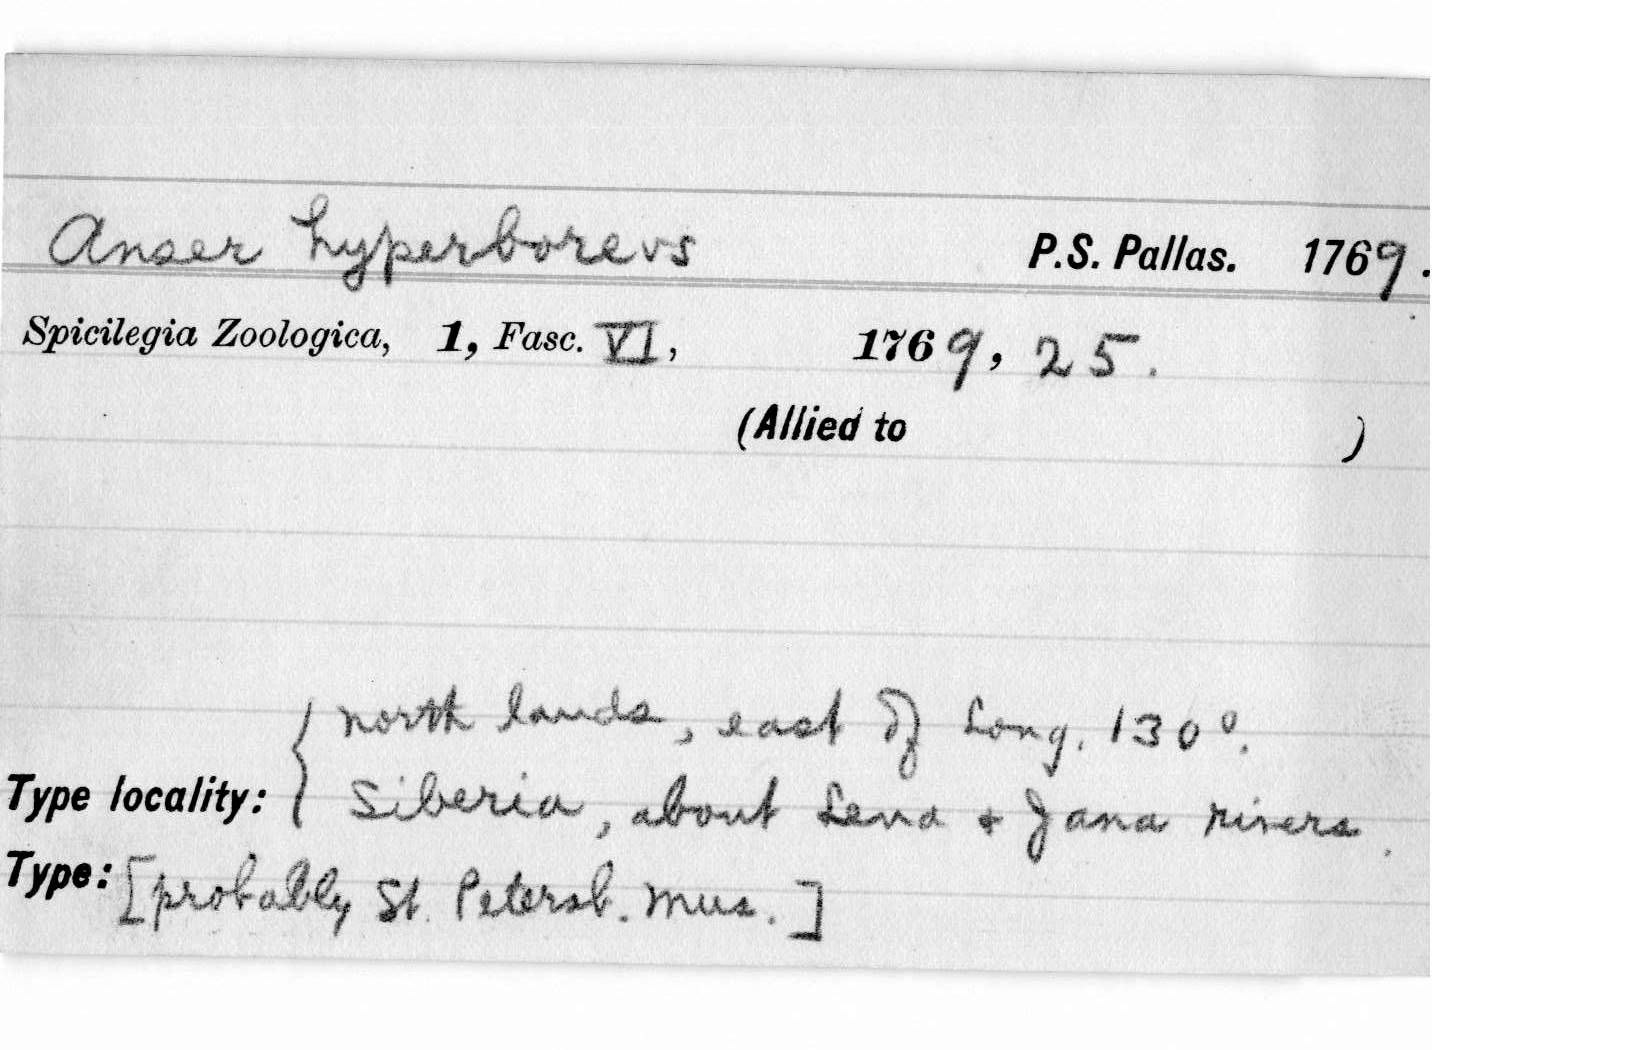 Anser hyperboreus P.S. Pallas. 1769.
Spicilegia Zoologica, 1, Fasc. VI, 1769, 25.
(Allied to )
north lands, east of Long. 130°.
Type locality: { Siberia, about Lena + Jana rivers.
Type: [probably St. Petersb. Mus.]